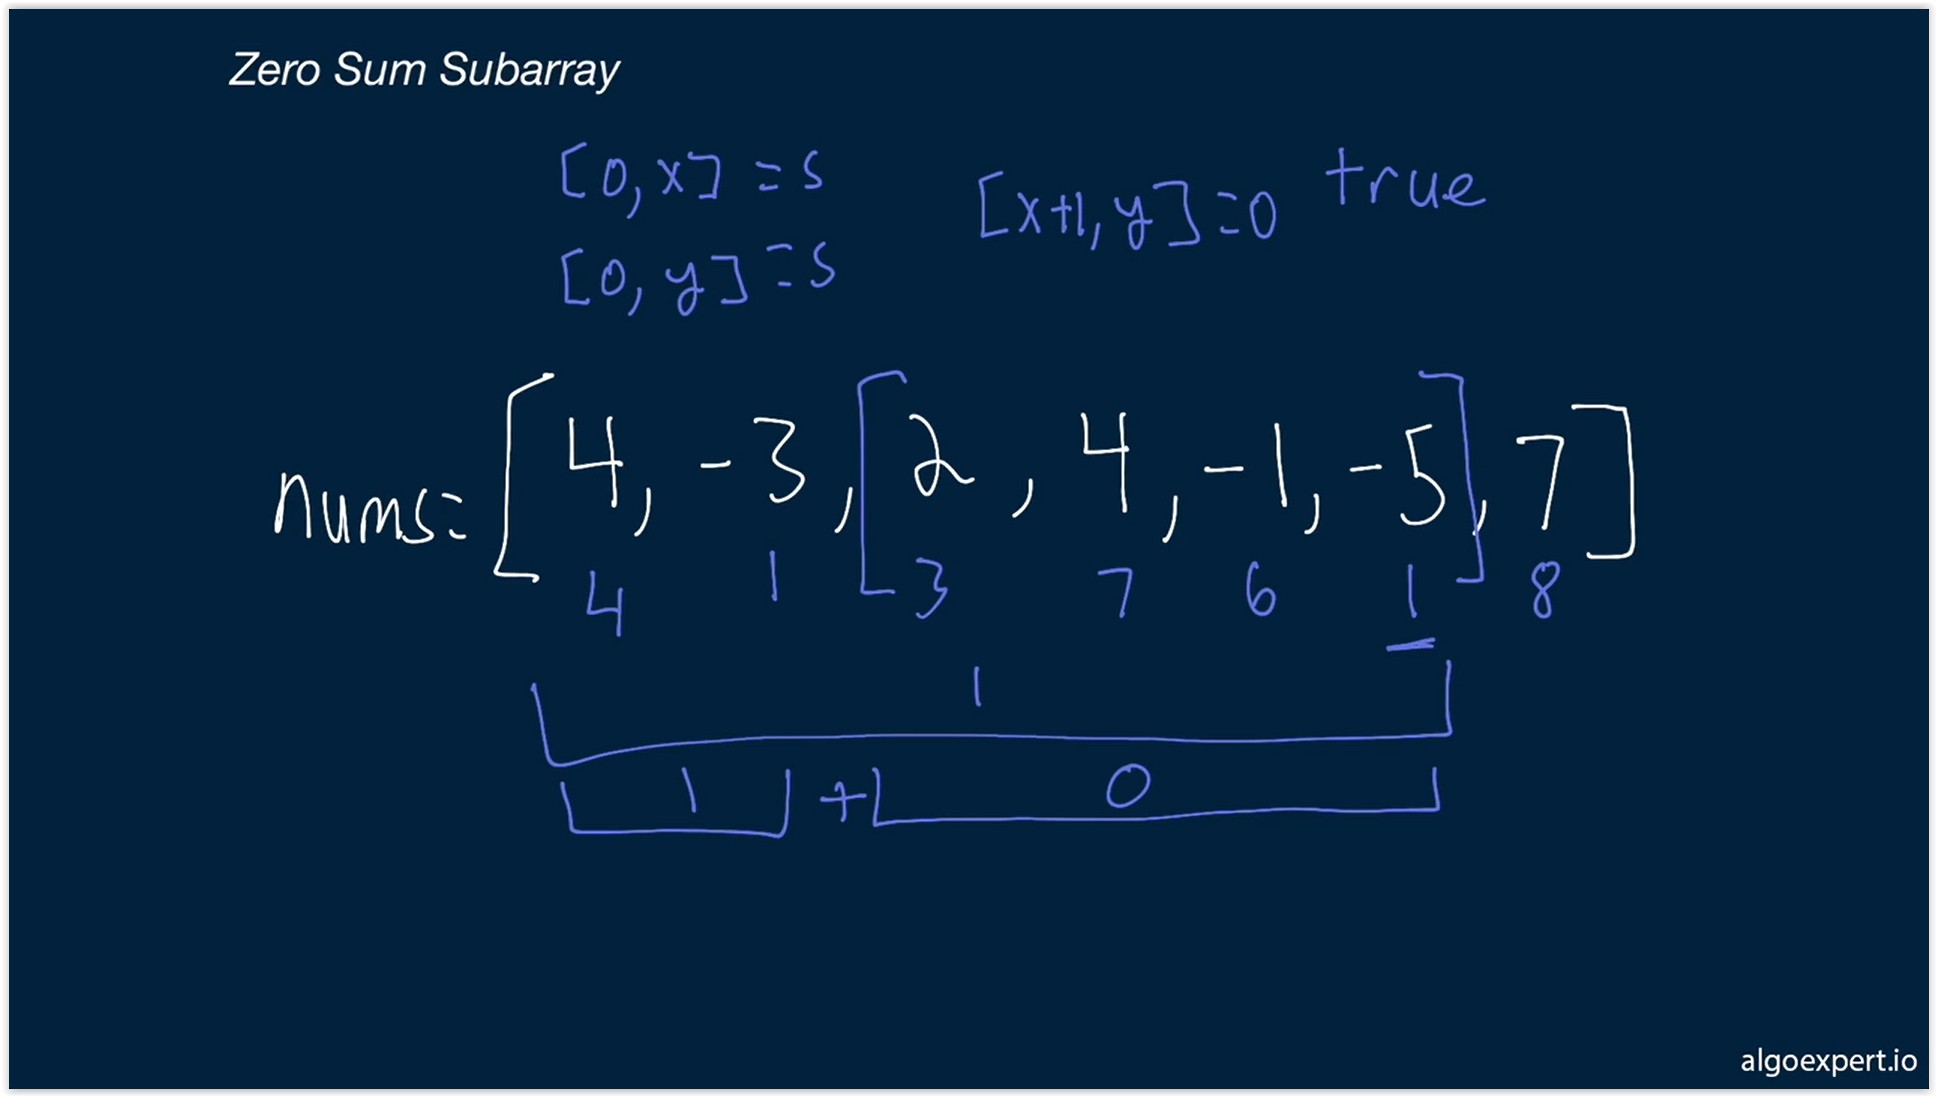 Zero Sum Subarray
[0,x] = s
[x+1,y]=0 true
[0,y] = s
nums=[4, -3, [2, 4, -1, -5], 7]
4 1 3 7 6 1 8
1
1 + 0
algoexpert.io